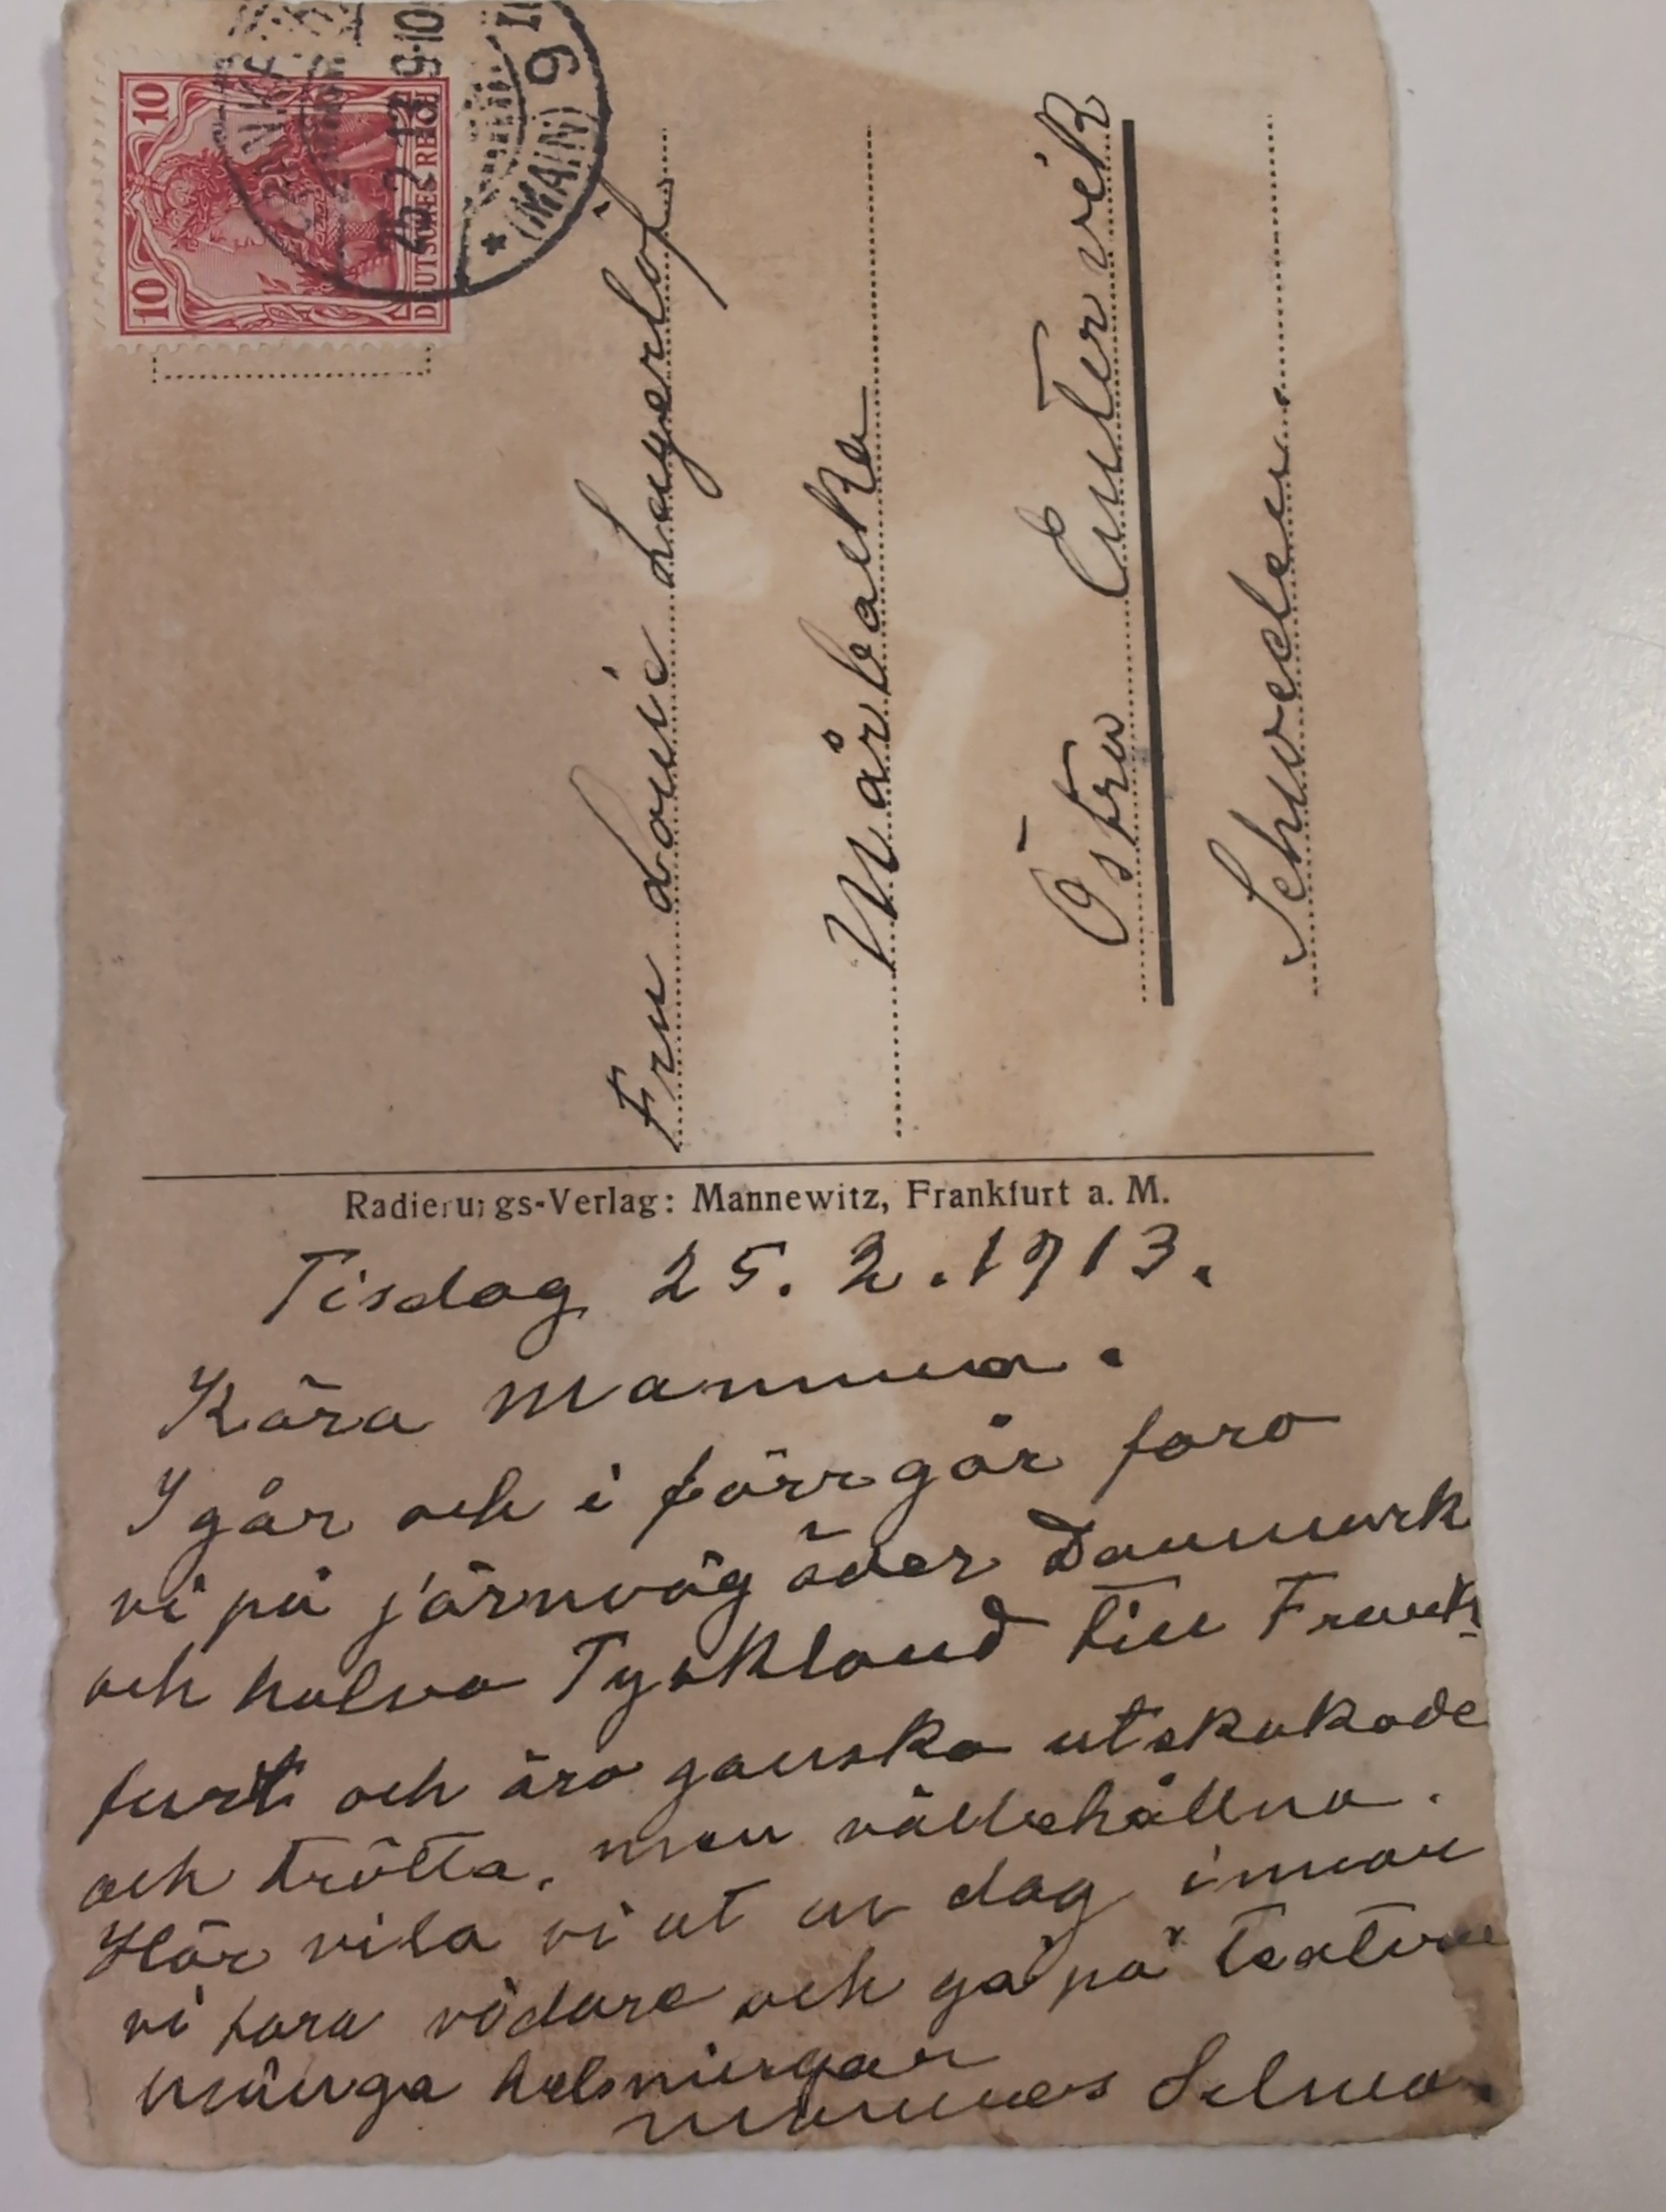 10
10
DEUTSCHES REICH
25.2.13 9-10
(MAIN) 9
Fru Lovisa Lagerlöf
Mårbacka
Östra Emtervik
Schweden
Radierungs-Verlag: Mannewitz, Frankfurt a. M.
Tisdag 25. 2. 1913.
Kära Mamma.
I går och i förrgår foro
vi på järnväg över Danmark
och halva Tyskland till Frank-
furt och äro ganska utskakade
och trötta, men välbehållna.
Här vila vi ut en dag innan
vi fara vidare och gå på teatern
Många helsningar
mammas Selma.